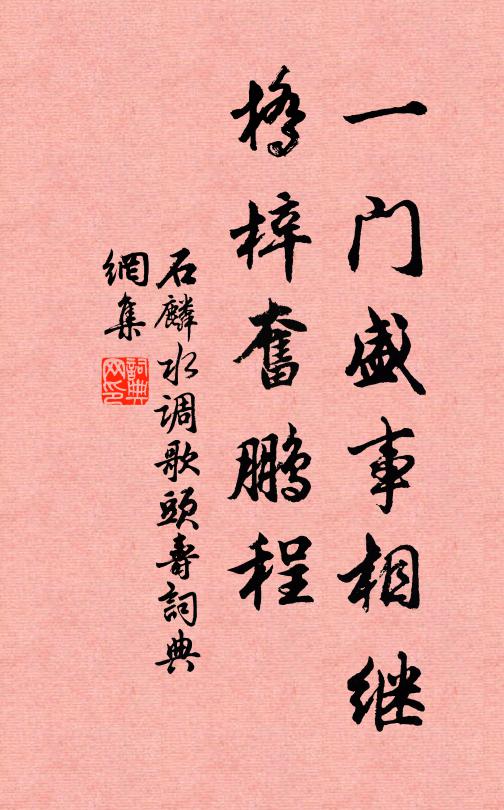 一门盛事相继
桥梓奮鹏程
石麟水调歌頭寿詞典
網集
詞典
网印